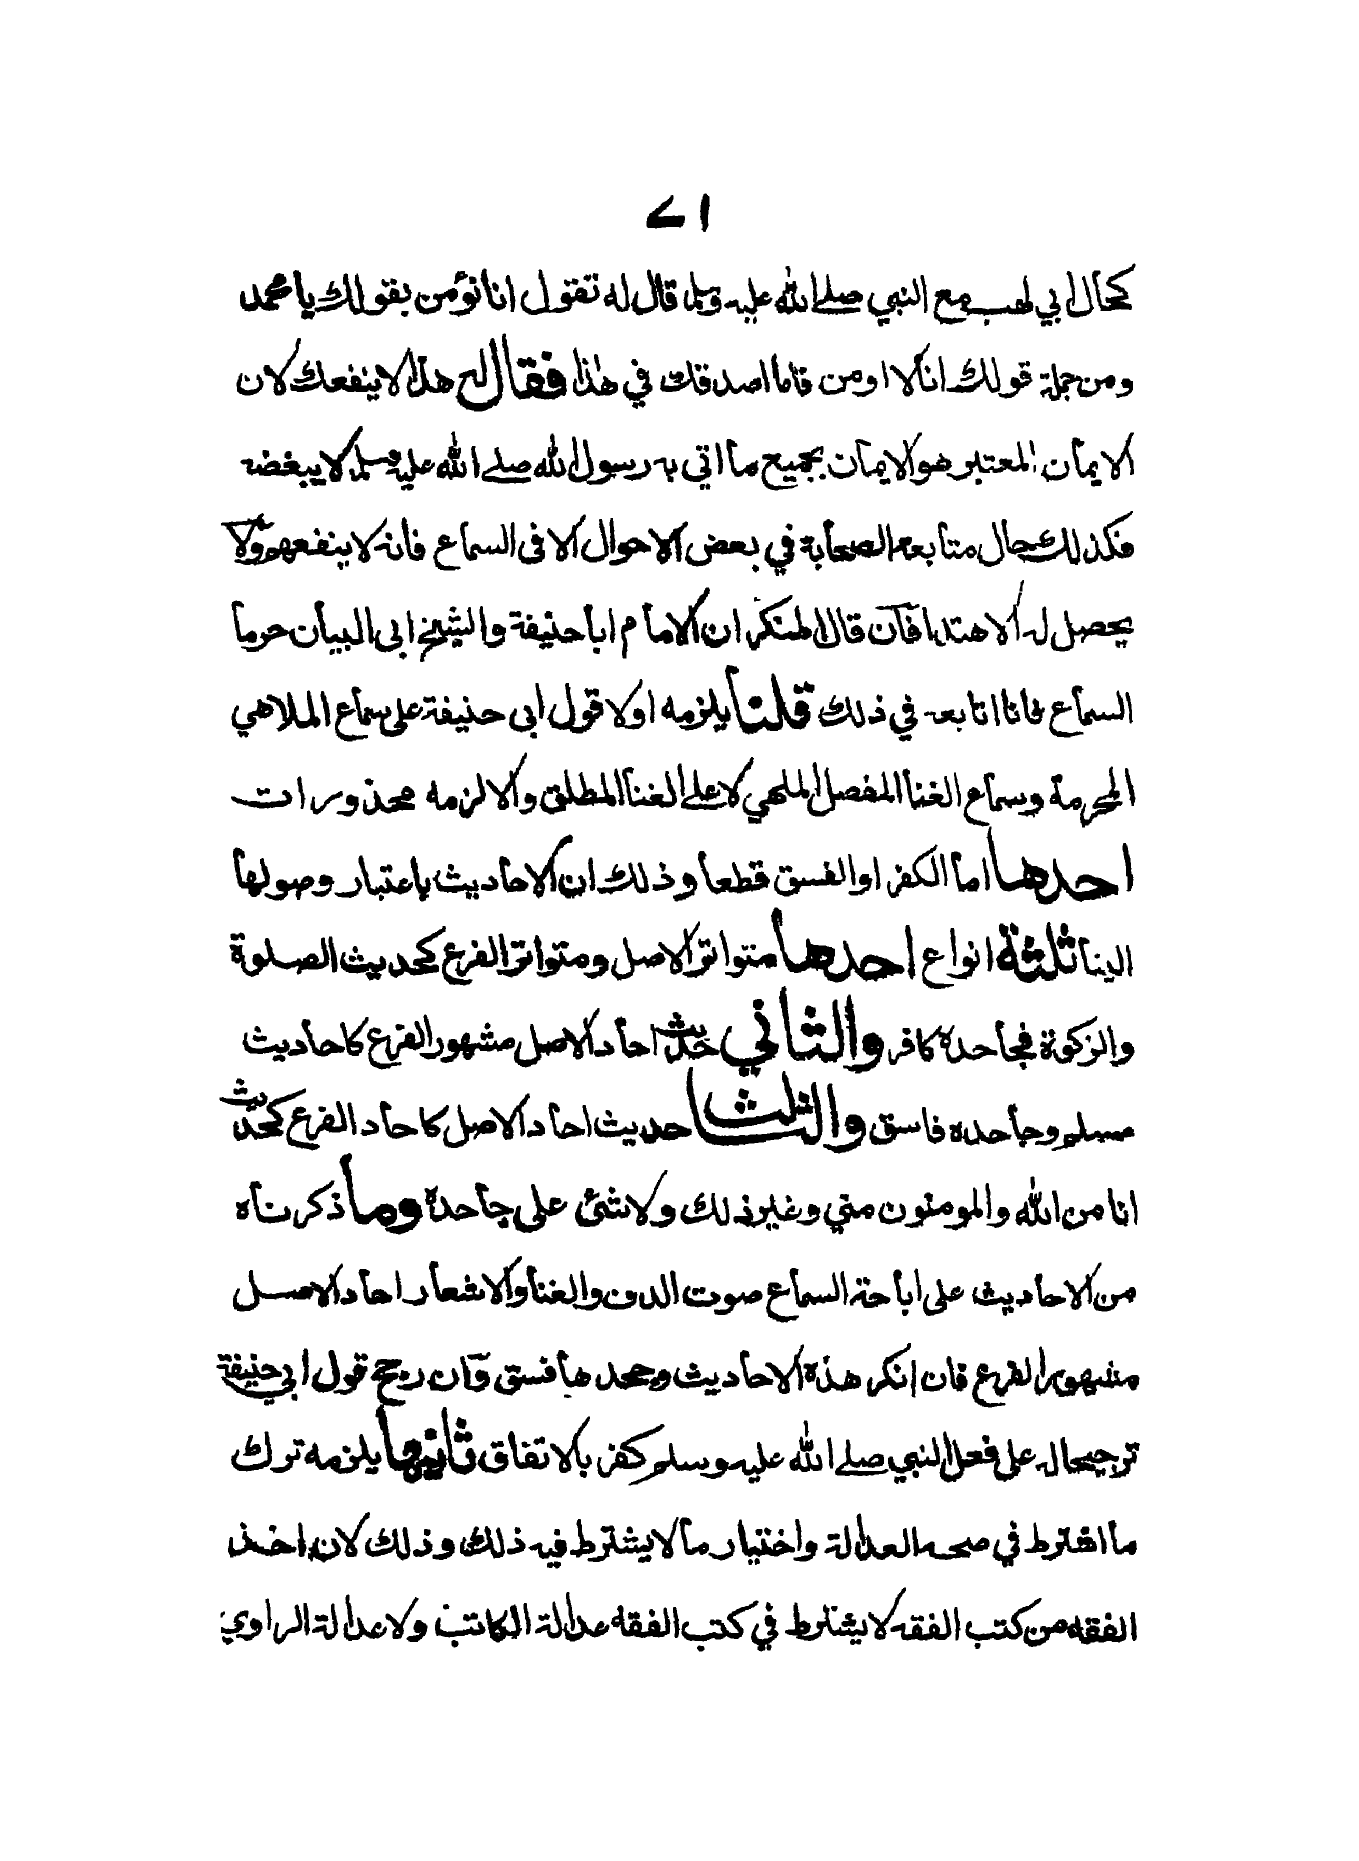 ٧١
كحال ابي لهب مع النبي صلے الله عليه وسلم قال له تقول انا نؤمن بقولك يا محمد
ومن جملة قولك انا لا اومن فاما اصدقك في هذا فقال له هذا لا ينفعك لان
الايمان المعتبر هو الايمان بجميع ما اتي به رسول الله صلے الله عليه وسلم لا ببعضه
فكذلك حال متابعه الصحابة في بعض الاحوال الا فى السماع فانه لا ينفعهم ولا
يحصل له الاهتدا فان قال المنكر ان الامام ابا حنيفة والشيخ ابى البيان حرما
السماع فانا اتابعه في ذلك قلنا يلزمه اولا قول ابى حنيفة على سماع الملاهي
المحرمة وسماع الغنا المفصل الملهي لا علے الغنا المطلق والا لزمه محذورات
احدها اما الكفر او الفسق قطعا وذلك ان الاحاديث باعتبار وصولها
الينا ثلثة انواع احدها متواتر الاصل ومتواتر الفرع كحديث الصلوة
والزكوة فجاحده كافر والثاني حديث احاد الاصل مشهور الفرع كاحاديث
مسلم وجاحده فاسق والثالث حديث احاد الاصل كاحاد الفرع كحديث
انا من الله والمومنون مني وغير ذلك ولا شئ على جاحدة وما ذكرناه
من الاحاديث على اباحة السماع صوت الدف والغنا والاشعار احاد الاصل
مشهور الفرع فان انكر هذه الاحاديث وجحدها فسق وان رجح قول ابي حنيفة
ترجيحا له على فعل النبي صلے الله عليه وسلم كفر بالاتفاق ثانيها يلزمه ترك
ما اشترط في صحه العدالة واختيار ما لا يشترط فيه ذلك وذلك لان اخذ
الفقه من كتب الفقه لا يشترط في كتب الفقه عدالة الكاتب ولا عدالة الراوي